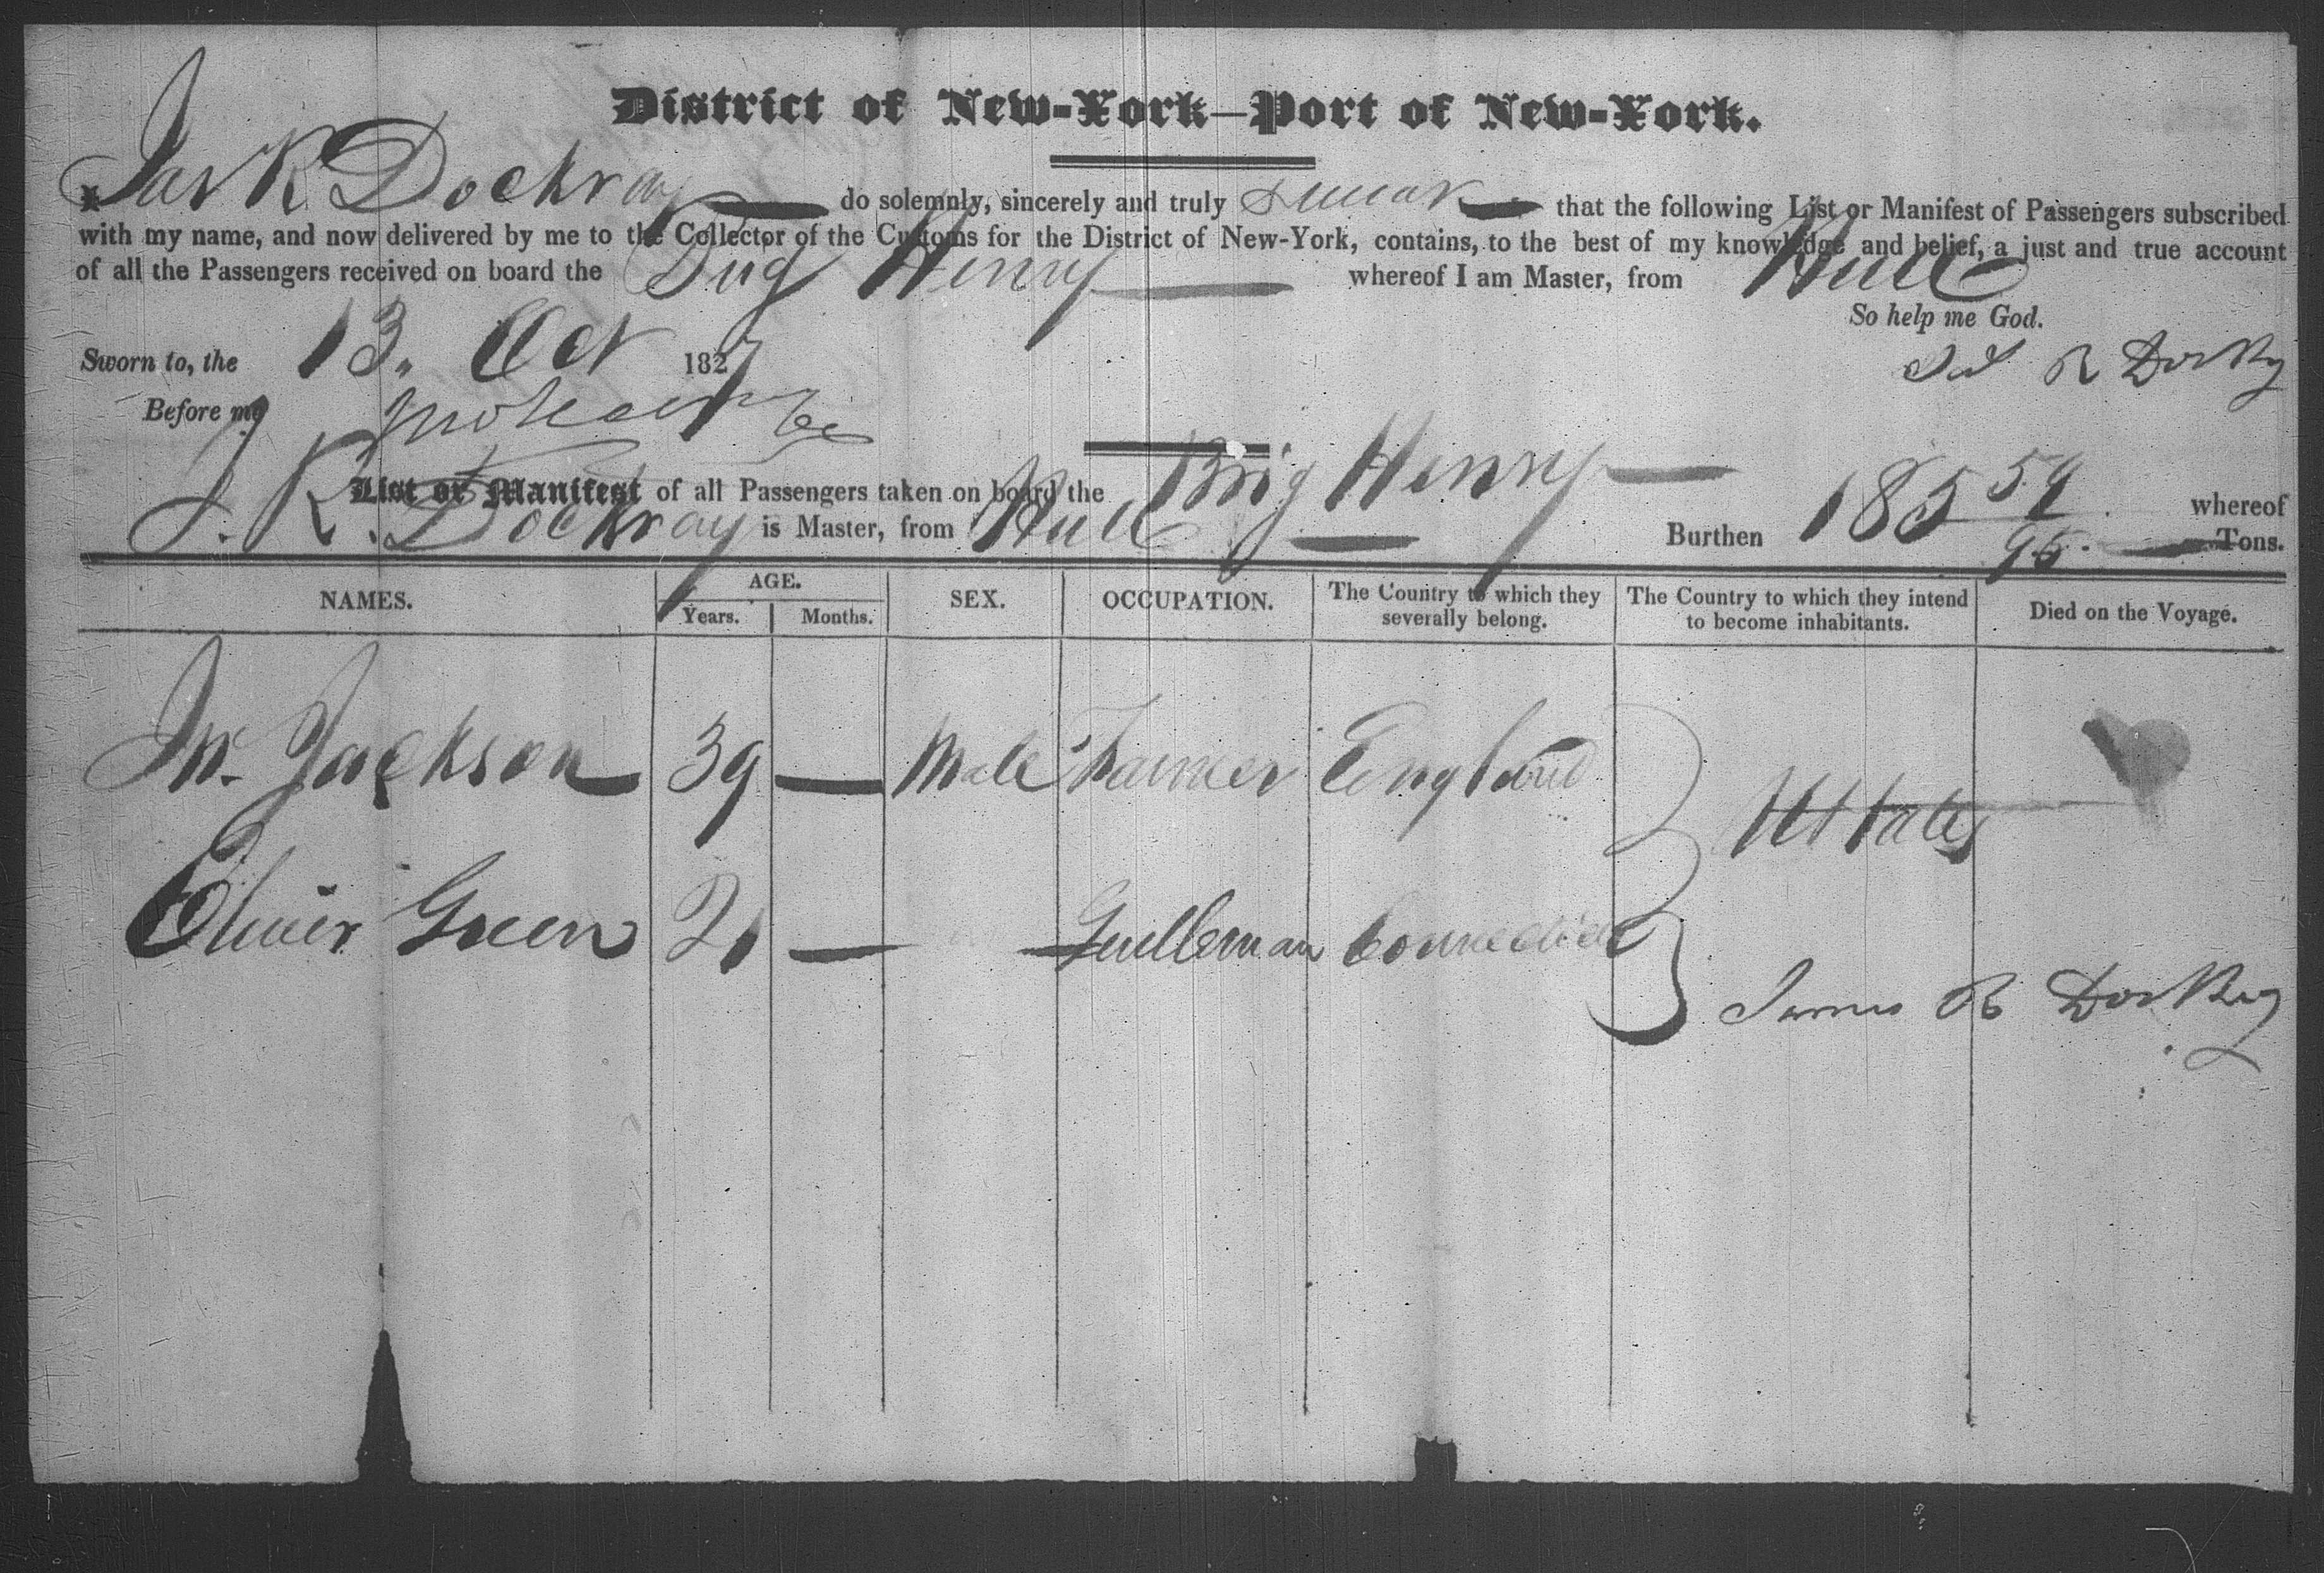 District of New-York—Port of New-York.
I Jas R Dockray do solemnly, sincerely and truly swear that the following List or Manifest of Passengers subscribed
with my name, and now delivered by me to the Collector of the Customs for the District of New-York, contains, to the best of my knowledge and belief, a just and true account
of all the Passengers received on board the Brig Henry whereof I am Master, from Hull
So help me God.
Sworn to, the 13. Oct 1827
Jas R Dockray
Before me
List or Manifest of all Passengers taken on board the Brig Henry whereof
J. R. Dockray is Master, from Hull Burthen 185 59/95 Tons.
NAMES. AGE. SEX. OCCUPATION. The Country to which they severally belong. The Country to which they intend to become inhabitants. Died on the Voyage.
Years. Months.
Jn. Jackson 39 — Male Farmer England
U States
Oliver Green 21 — Gentleman Connecticut
James R Dockray